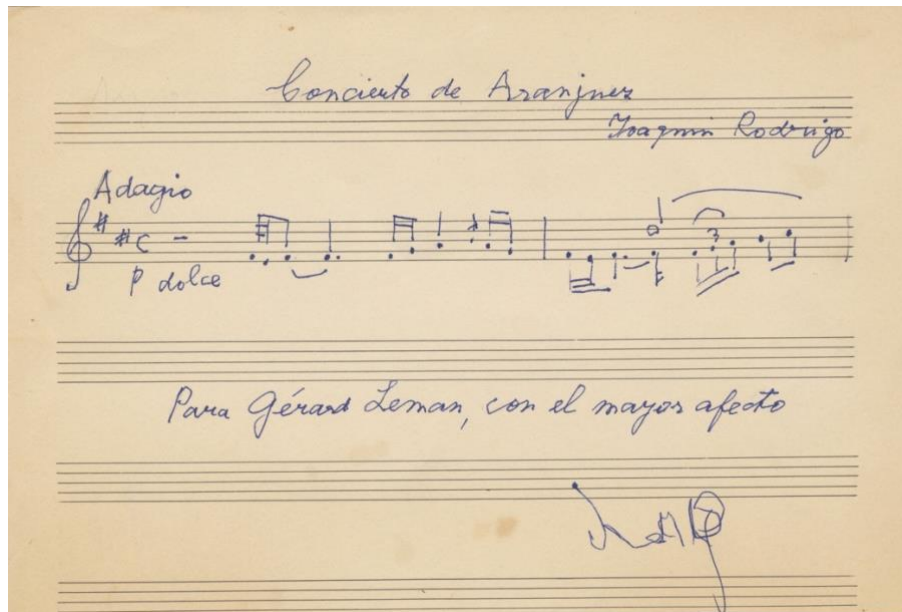 Concierto de Aranjuez
Joaquin Rodrigo
Adagio
P dolce
3
Para Gérard Leman, con el mayor afecto